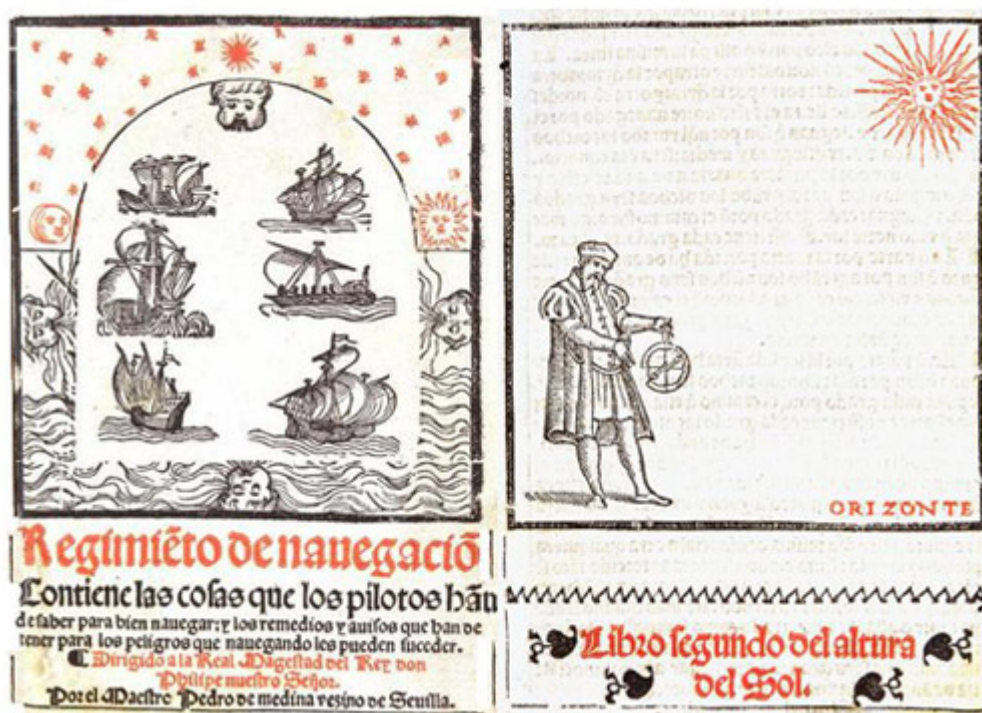 Regimiẽto de nauegaciõ
Contiene las cosas que los pilotos hãn
de saber para bien nauegar: y los remedios y auisos que han de
tener para los peligros que nauegando les pueden suceder.
Dirigido a la Real Magestad del Rey don
Philipe nuestro Señor.
Por el Maestro Pedro de medina vezino de Seuilla.
ORIZONTE
Libro segundo del altura
del Sol.